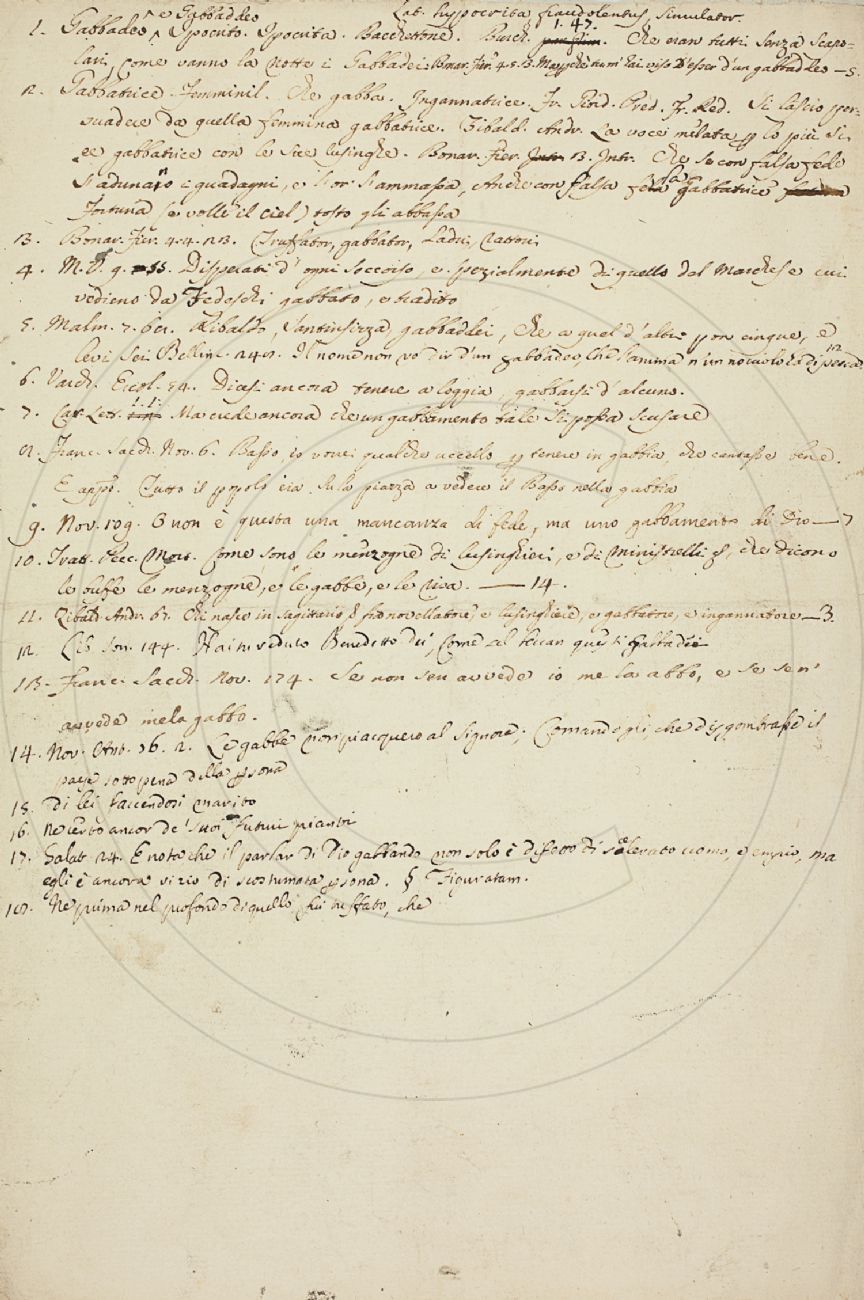 ^ e Gabbaddeo Lat. hyppocrita fraudolentus, simulator.
1. Gabbadeo ^ Ipocrito. Ipocrita. Bacchettone. Burch. 1. 47. Che eran tutti senza scapo-
lari, come vanno la notte i Gabbadei. Bonar. Fier. 4. 5. 13. viso d'esser d'un gabbaddeo — 5.
2. Gabbatrice. Femminil. Che gabba. Ingannatrice. Fr. Giord. Pred. Fr. Red. Si lasciò per-
suadere da quella femmina gabbatrice. Zibald. Andr. La voce melata p lo più si-
ee gabbatrice con le sue lusinghe. Bonar. Fier. Intr. 3. Intr. Che se con falsa fede
s'adunaro i guadagni, e l'or s'ammassa, Anche con falsa fe la gabbatrice
Fortuna (e volle il Ciel) tosto gli abbassa
3. Bonar. Fier. 4. 4. 23. Truffator, gabbator, Ladri,
4. M. V. 9. 55. Disperati d'ogni soccorso, e spezialmente di quello del Marchese cui
vedieno da Tedeschi gabbato, e tradito
5. Malm. 7. 62. Ribaldo, Santinfizza, gabbaddei, Che a quel d'altri pon cinque, e
levi sei. Bellinc. 249. Il nome non vo dir d'un gabbadeo, Che l'anima n'un nocciolo di pesca.
6. Varch. Ercol. 54. Dicesi ancora tenere a loggia, gabbarsi d'alcuno.
7. Car. Lett. 1. 1. Ma crede ancora che un gabbamento tale si possa scusare
8. Franc. Sacch. Nov. 6. Basso, io vorrei qualche uccello p tenere in gabbia, che cantasse bene.
E appr. Tutto il popolo era su la piazza a vedere il Basso nella gabbia
9. Nov. 109. E non è questa una mancanza di fede, ma uno gabbamento di Dio — 7
10. Tratt. Pecc. Mort. Come sono le menzogne di lusinghieri, e di ministrelli, che dicono
le buffe le menzogne, e le gabbe, e le risa. — 14.
11. Zibald. Andr. 67. Chi nasce in sagittario è novellatore, e lusinghiere, e gabbatore, e ingannatore — 3.
12. son. 144. Hai tu veduto Benedetto Dei, Come al teccan questi Gabbadei
13. Franc. Sacch. Nov. 174. Se non sen avvede io me la abbo, e se sen'
avvede me la gabbo.
14. Nov. Ant. 36. 2. Le gabbe non piacquero al Signore; Comandogli che disgombrasse il
paese sotto pena della psona
15. Di lei faccendosi marito
16. Ne certo ancor de' suoi futuri pianti
17. Galat. 24. E nota che il parlar di Dio gabbando non solo è difetto di scelerato uomo, e empio, ma
egli è ancora vizio di scostumata psona. § Figuratam.
18. Ne prima nel profondo di quello fui tuffato, che